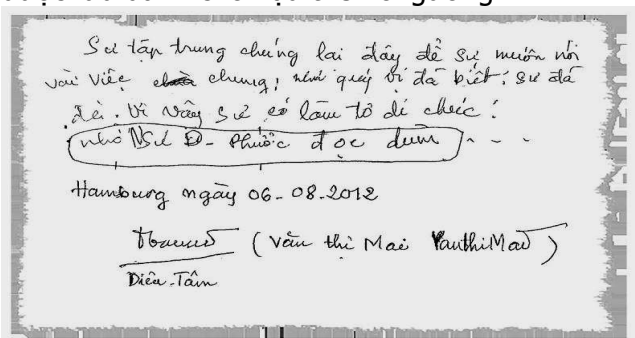 Sư tập trung chúng lại đây để Sư muốn nói
vài việc chung, như quý vị đã biết: Sư đã
.Vì vậy Sư có làm tờ di chúc:
nhờ NSư Đ- Phước đọc dùm . - -
Hamburg ngày 06-08-2012
(Văn thị Mai VanthiMai)
Diêu-Tâm